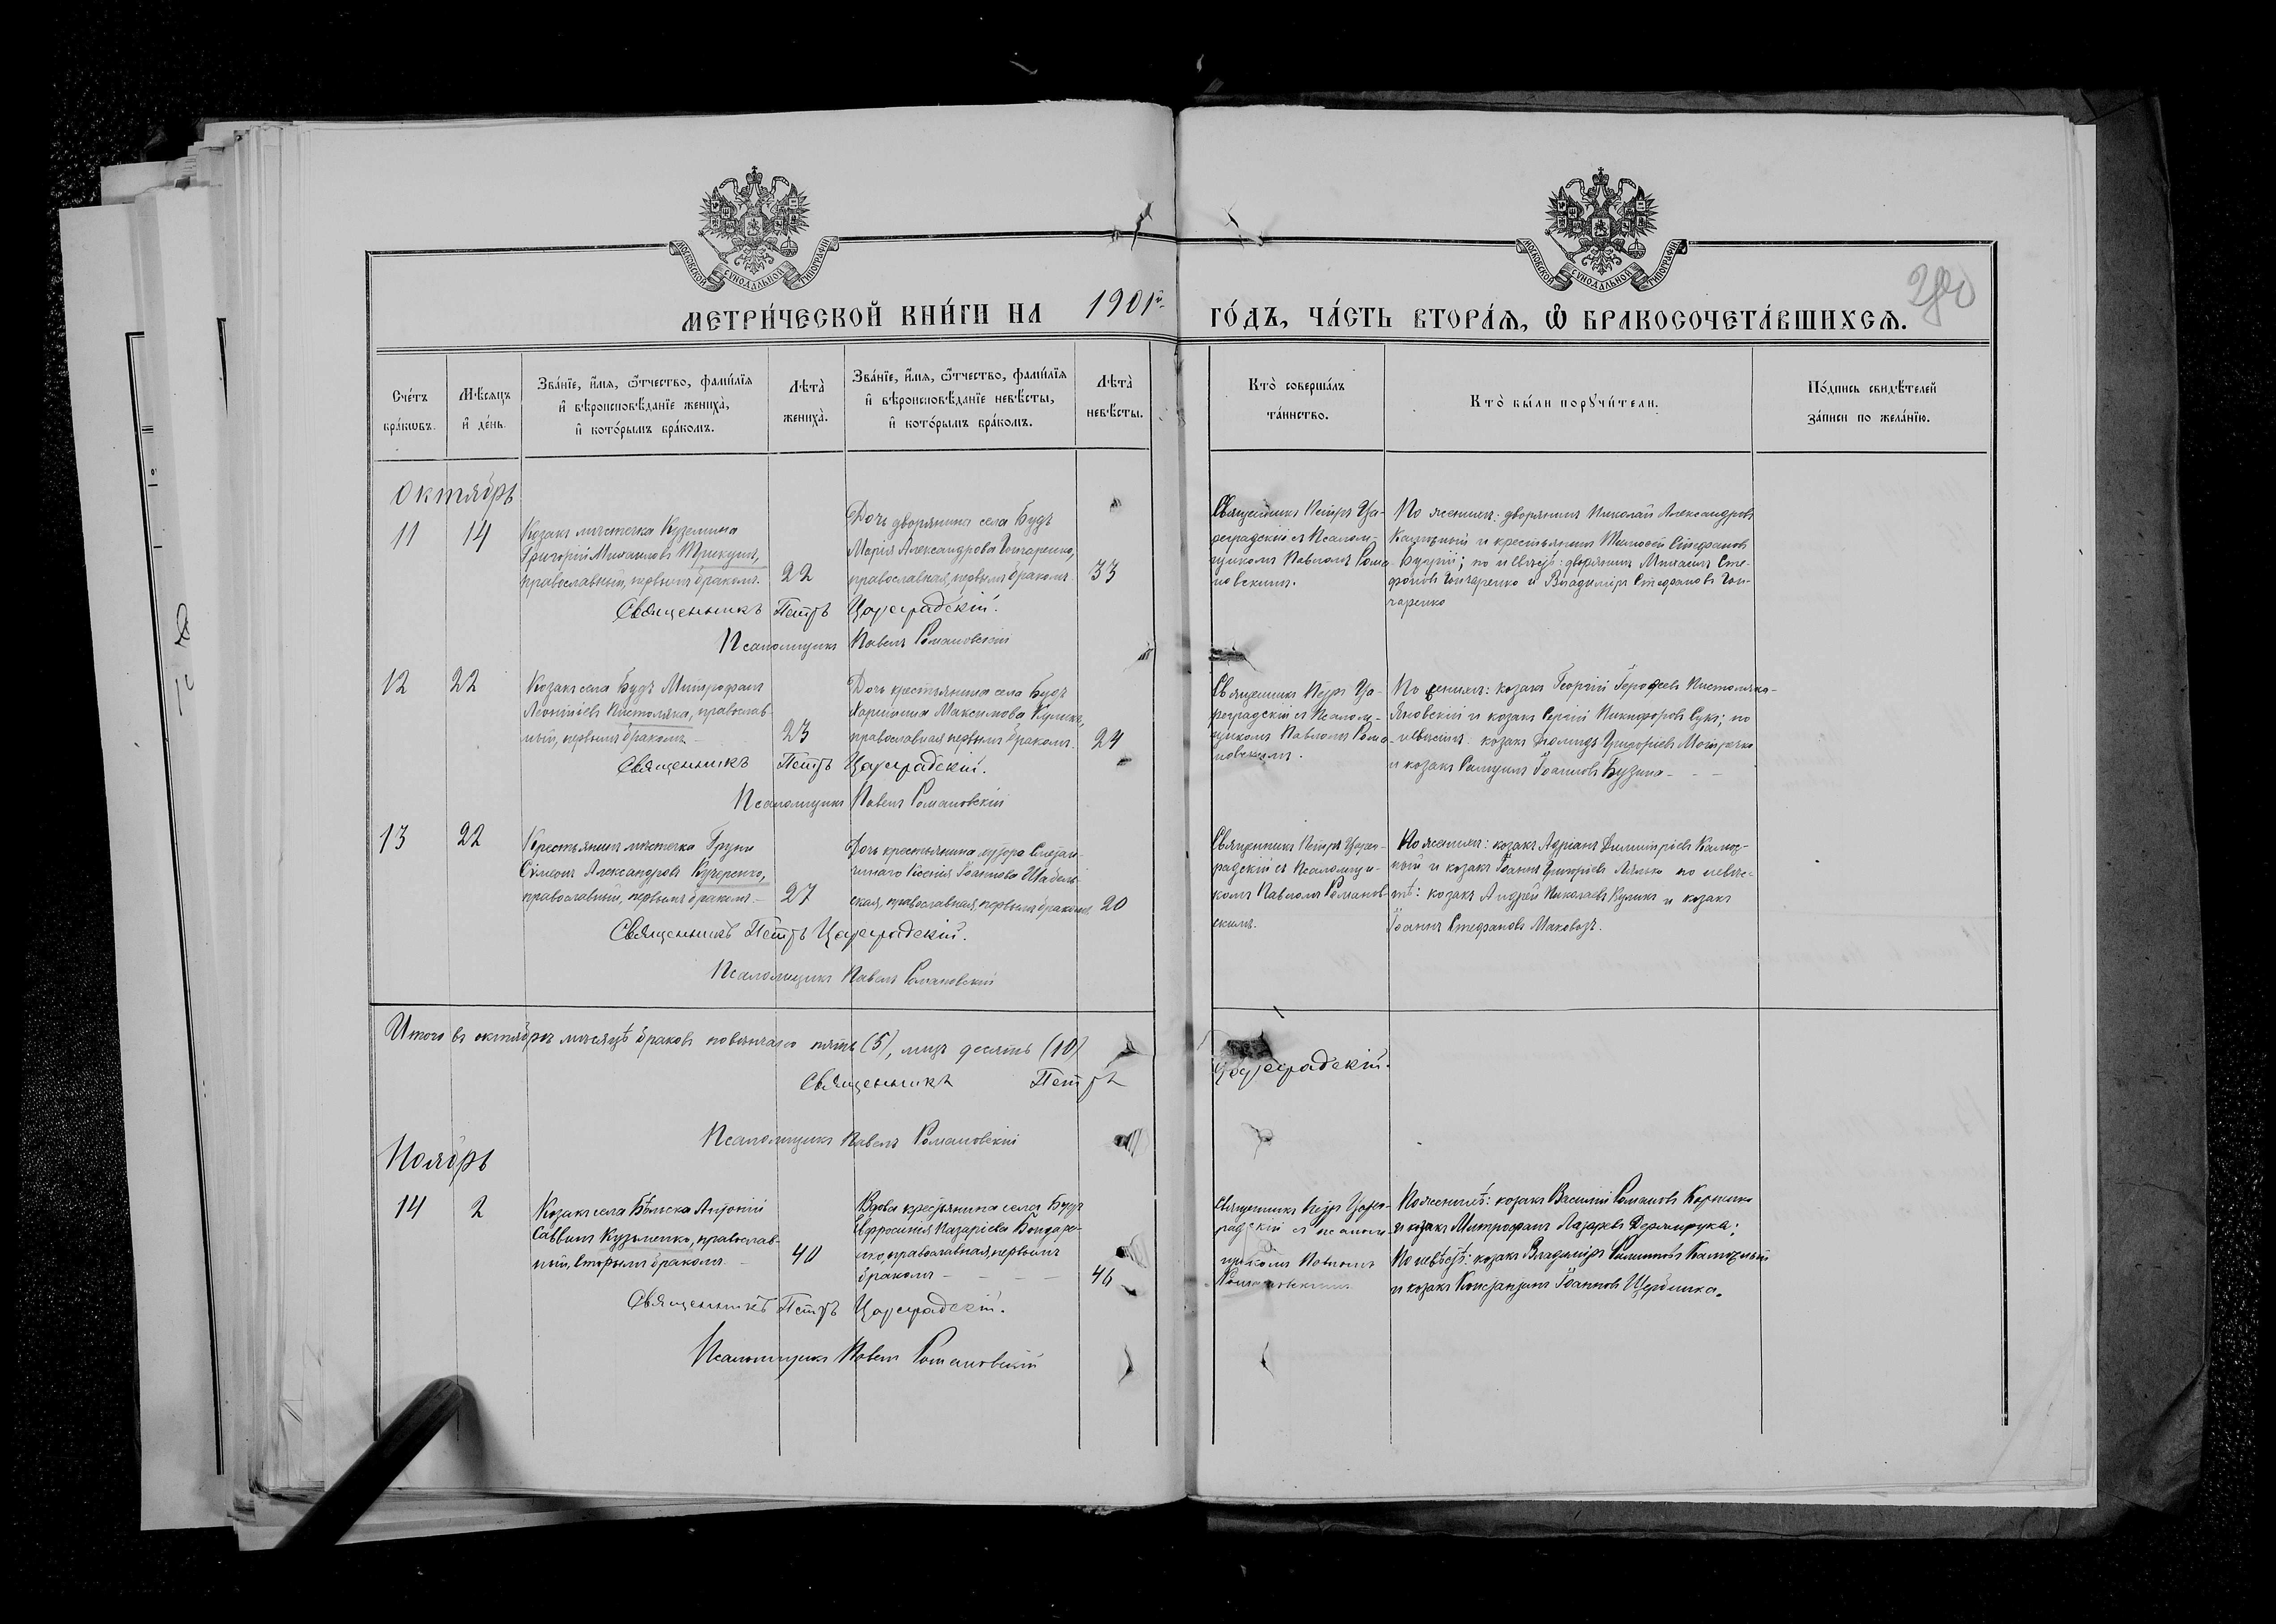 МОСКОВСКОЙ СУНОДАЛЬНОЙ ТИПОГРАФІИ
МОСКОВСКОЙ СУНОДАЛЬНОЙ ТИПОГРАФІИ
МЕТРИ́ЧЕСКОЙ КНИ́ГИ НА 1901й ГО́ДЪ, ЧА́СТЬ ВТОРА́Ѧ, Ѽ БРАКОСОЧЕТА́ВШИХСѦ.
Сче́тъ бра́кѡвъ.
Мѣ́сѧцъ и҆ де́нь.
Зва́нїе, и҆́мѧ, ѻ҆́тчество, фами́лїѧ
и҆ вѣроисповѣ́данїе жениха̀,
и҆ кото́рымъ бра́комъ.
Лѣта̀ жениха̀.
Зва́нїе, и҆́мѧ, ѻ҆́тчество, фами́лїѧ
и҆ вѣроисповѣ́данїе невѣ́сты,
и҆ кото́рымъ бра́комъ.
Лѣта̀ невѣ́сты.
Кто̀ соверша́лъ
та́инство.
Кто̀ бы́ли порꙋчи́тели.
По́дпись свидѣ́телей
за́писи по жела́нїю.
Октябрь
11
14
Козакъ мѣстечка Куземина
Григорій Михаиловъ Прикуш,
православный, первымъ бракомъ.
22
Дочь дворянина села Будъ
Марія Александрова Гончаренко,
православная, первымъ бракомъ.
33
Священникъ Петръ Ца-
реградскій съ Псалом-
щикомъ Павломъ Рома-
новскимъ.
По женихѣ: дворянинъ Николай Александровъ
и крестьянинъ Тимофей Стефановъ
по невѣстѣ: дворянинъ Михаилъ Сте-
фановъ Гончаренко и Владиміръ Стефановъ Гон-
чаренко
Священникъ Петръ Цареградскій.
Псаломщикъ Павелъ Романовскій
12
22
Козакъ села Будъ Митрофанъ
Леонтіевъ Пистоляка, православ
ный, первымъ бракомъ
23
Дочь крестьянина села Будъ
Харитина Максимова Кулика,
православная первымъ бракомъ.
24
Священникъ Петръ Ца-
реградскій съ Псалом-
щикомъ Павломъ Рома-
новскимъ.
По женихѣ: козакъ Георгій Герофеевъ Пистоляка-
Яновскій и козакъ Сергій Никифоровъ Сукъ; по
невѣстѣ: козакъ Григоріевъ
и козакъ Іоанновъ Бузина
Священникъ Петръ Цареградскій.
Псаломщикъ Павелъ Романовскій
13
22
Крестьянинъ мѣстечка Груни
Симеонъ Александровъ Кучеренко,
православный, первымъ бракомъ.
27
Дочь крестьянина хутора
Ксенія Іоаннова Шабель-
ская, православная, первымъ бракомъ.
20
Священникъ Петръ Царег-
радскій съ Псаломщи-
комъ Павломъ Романов-
скимъ.
По женихѣ: козакъ Адріанъ Димитріевъ Калюж-
ный и козакъ Іоаннъ Григоріевъ Лялько по невѣс-
тѣ: козакъ Андрей Николаевъ Куликъ и козакъ
Іоаннъ Стефановъ Маковозъ.
Священникъ Петръ Цареградскій.
Псаломщикъ Павелъ Романовскій
Итого въ октябрѣ мѣсяцѣ браковъ повѣнчано пять (5), лицъ десять (10)
Священникъ Петръ Цареградскій.
Псаломщикъ Павелъ Романовскій
Ноябрь
14
2
Козакъ села Бѣльска Антоній
Саввинъ Кузьменко, православ-
ный, вторымъ бракомъ
40
Вдова крестьянина села Будъ
Евфросинія Назаріева Бондаре-
нко, православная, первымъ
бракомъ
46
Священникъ Петръ Царег-
радскій съ псалом-
щикомъ Павломъ
Романовскимъ
По женихѣ: козакъ Василій Романовъ
и козакъ Митрофанъ Лазаревъ
По невѣстѣ: козакъ Владиміръ Калюжный
и козакъ Константинъ Іоанновъ Щербина.
Священникъ Петръ Цареградскій.
Псаломщикъ Павелъ Романовскій